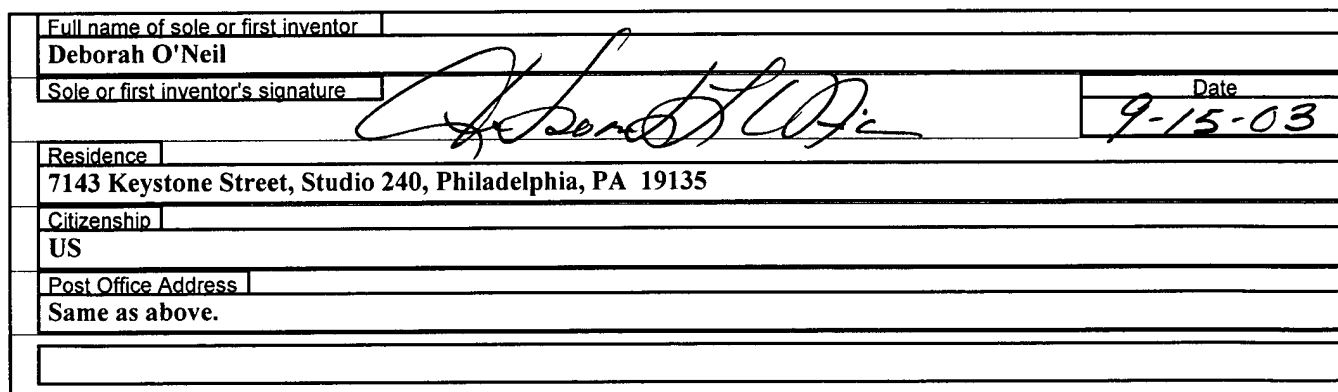 Full name of sole or first inventor
Deborah O'Neil
Sole or first inventor's signature
Date
9-15-03
Residence
7143 Keystone Street, Studio 240, Philadelphia, PA 19135
Citizenship
US
Post Office Address
Same as above.